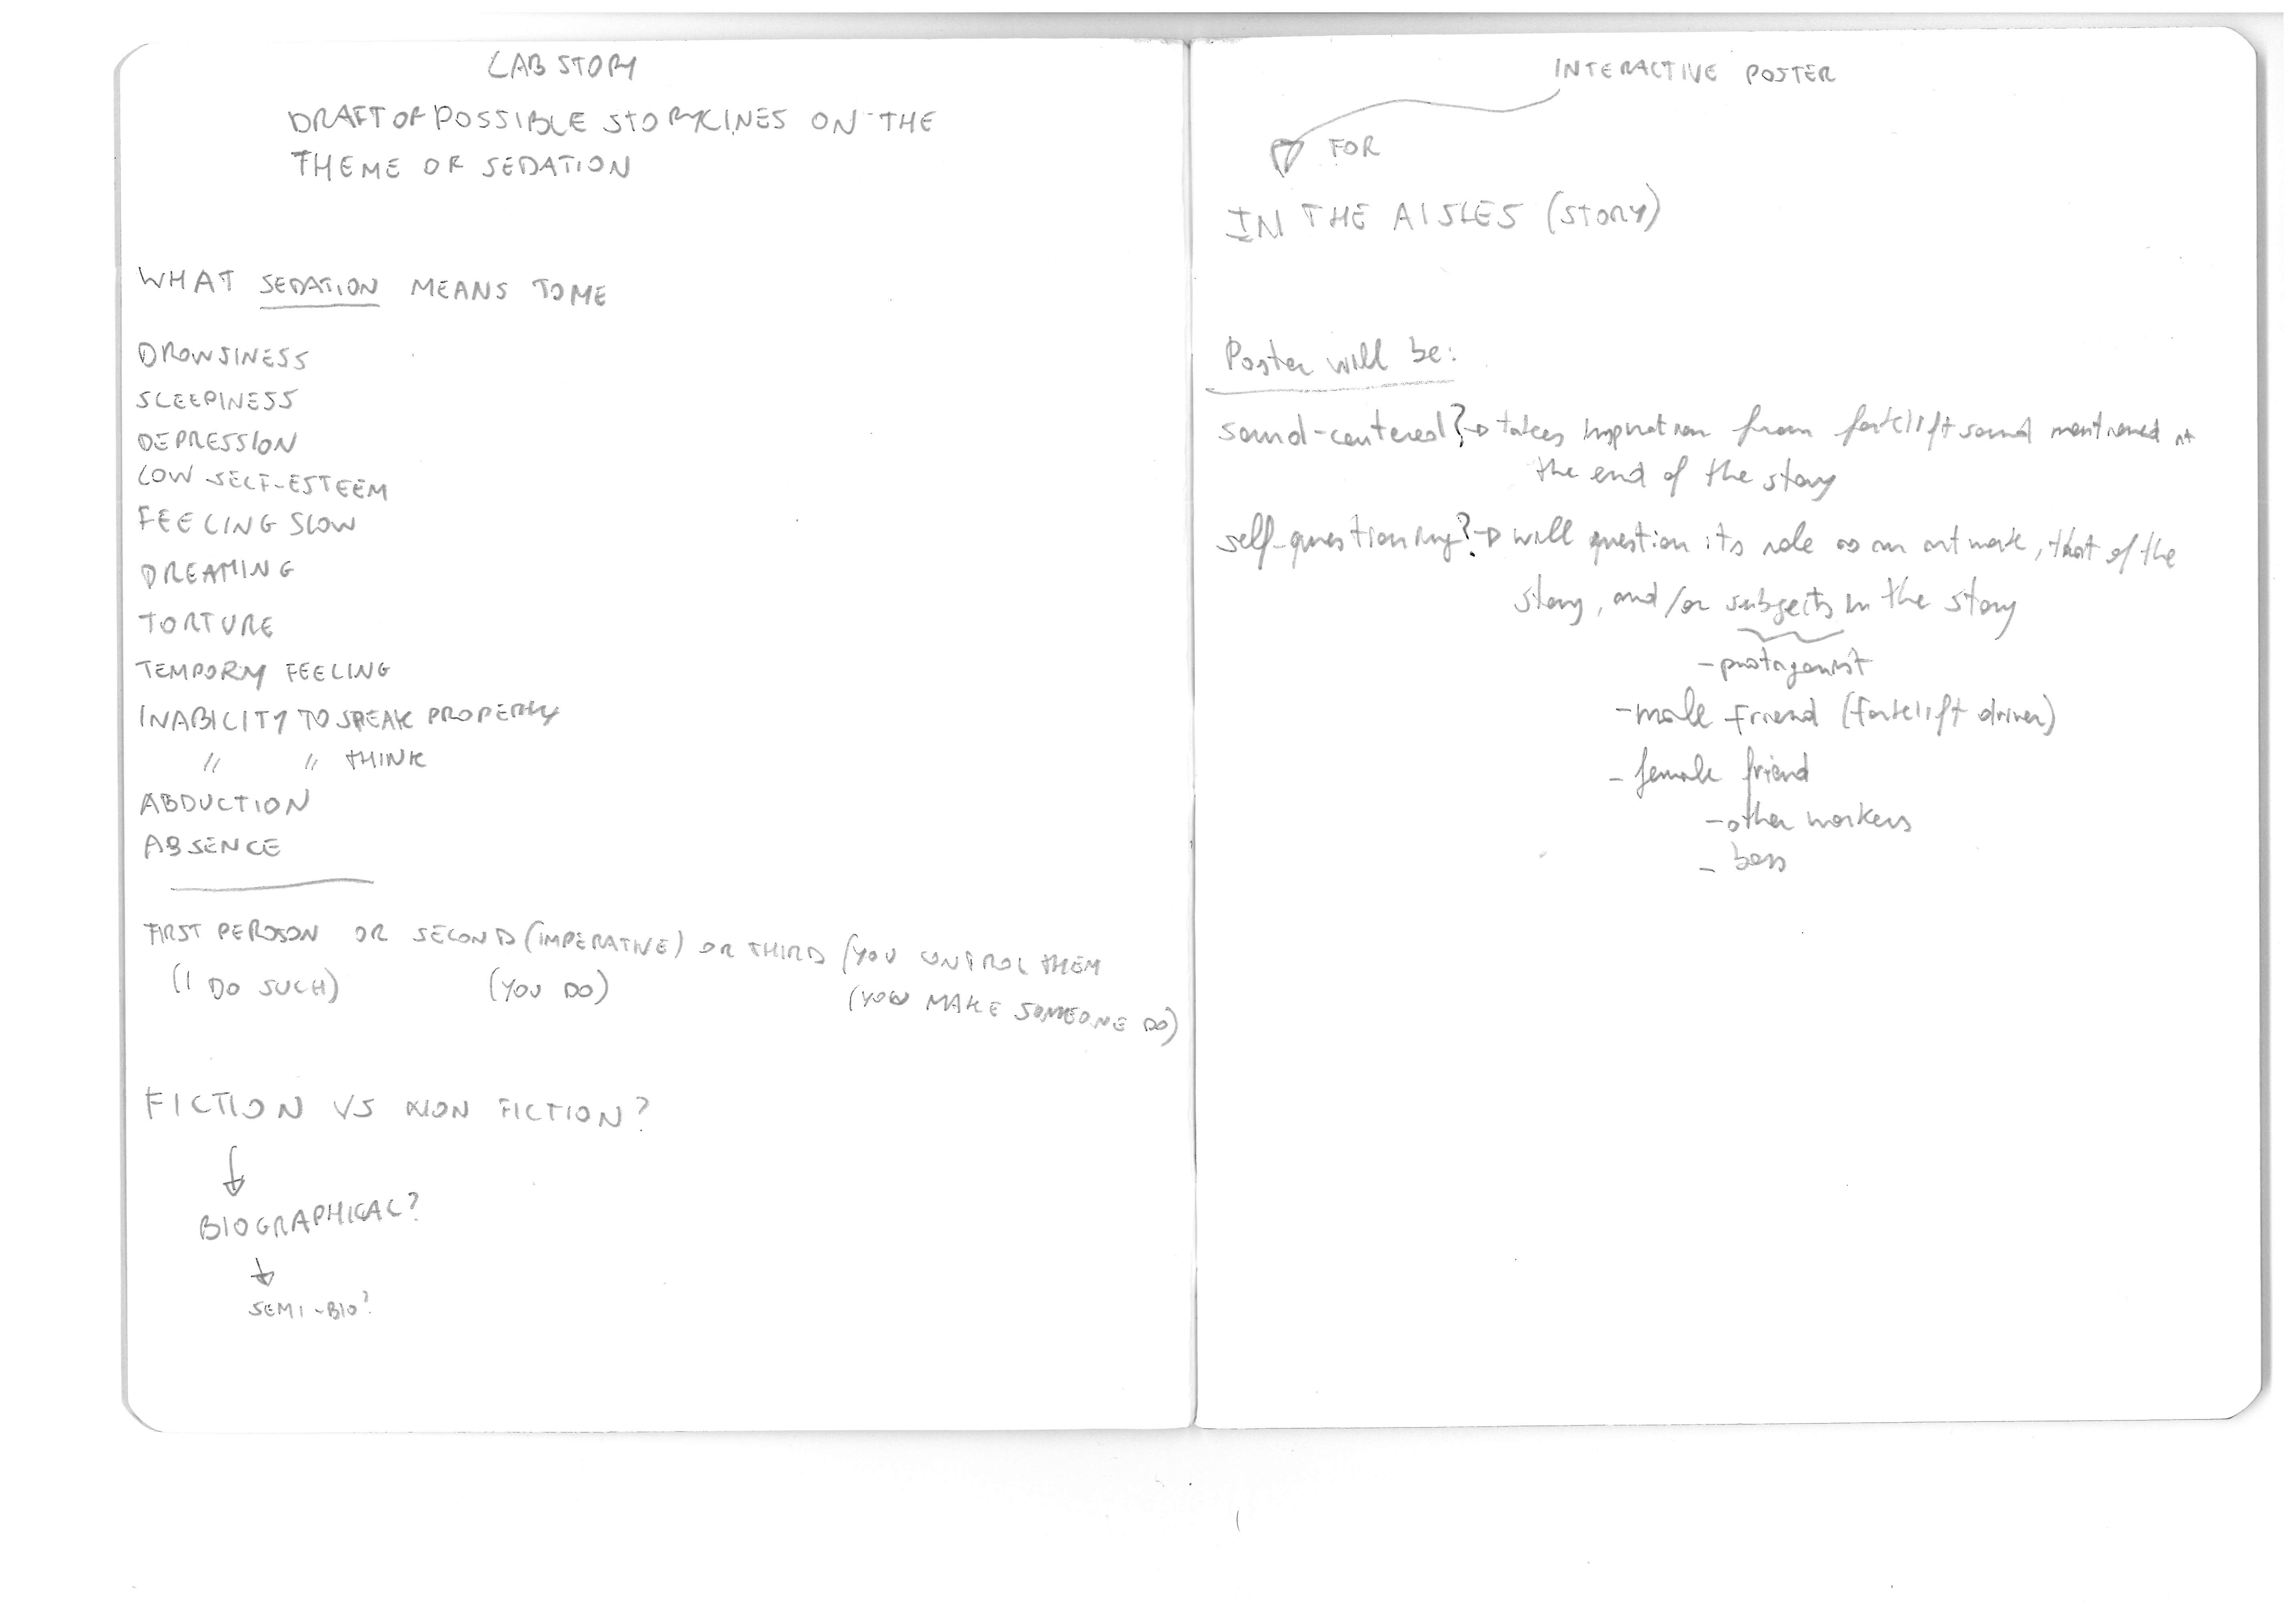 LAB STORY
DRAFT OF POSSIBLE STORYLINES ON THE
THEME OF SEDATION
WHAT SEDATION MEANS TO ME
DROWSINESS
SLEEPINESS
DEPRESSION
LOW SELF-ESTEEM
FEELING SLOW
DREAMING
TORTURE
TEMPORRY FEELING
INABILITY TO SPEAK PROPERLY
" " THINK
ABDUCTION
ABSENCE
FIRST PERSON OR SECOND (IMPERATIVE) OR THIRD (YOU CONTROL THEM
(I DO SUCH) (YOU DO) (YOU MAKE SOMEONE DO)
FICTION VS NON FICTION?
BIOGRAPHICAL?
SEMI-BIO?
INTERACTIVE POSTER
FOR
IN THE AISLES (STORY)
Poster will be:
sound-centered? → takes inspiration from forklift sound mentioned at
the end of the story
self-questioning? → will question its role as an art work, that of the
story, and/or subjects in the story
- protagonist
- male friend (forklift driver)
- female friend
- other workers
- boss